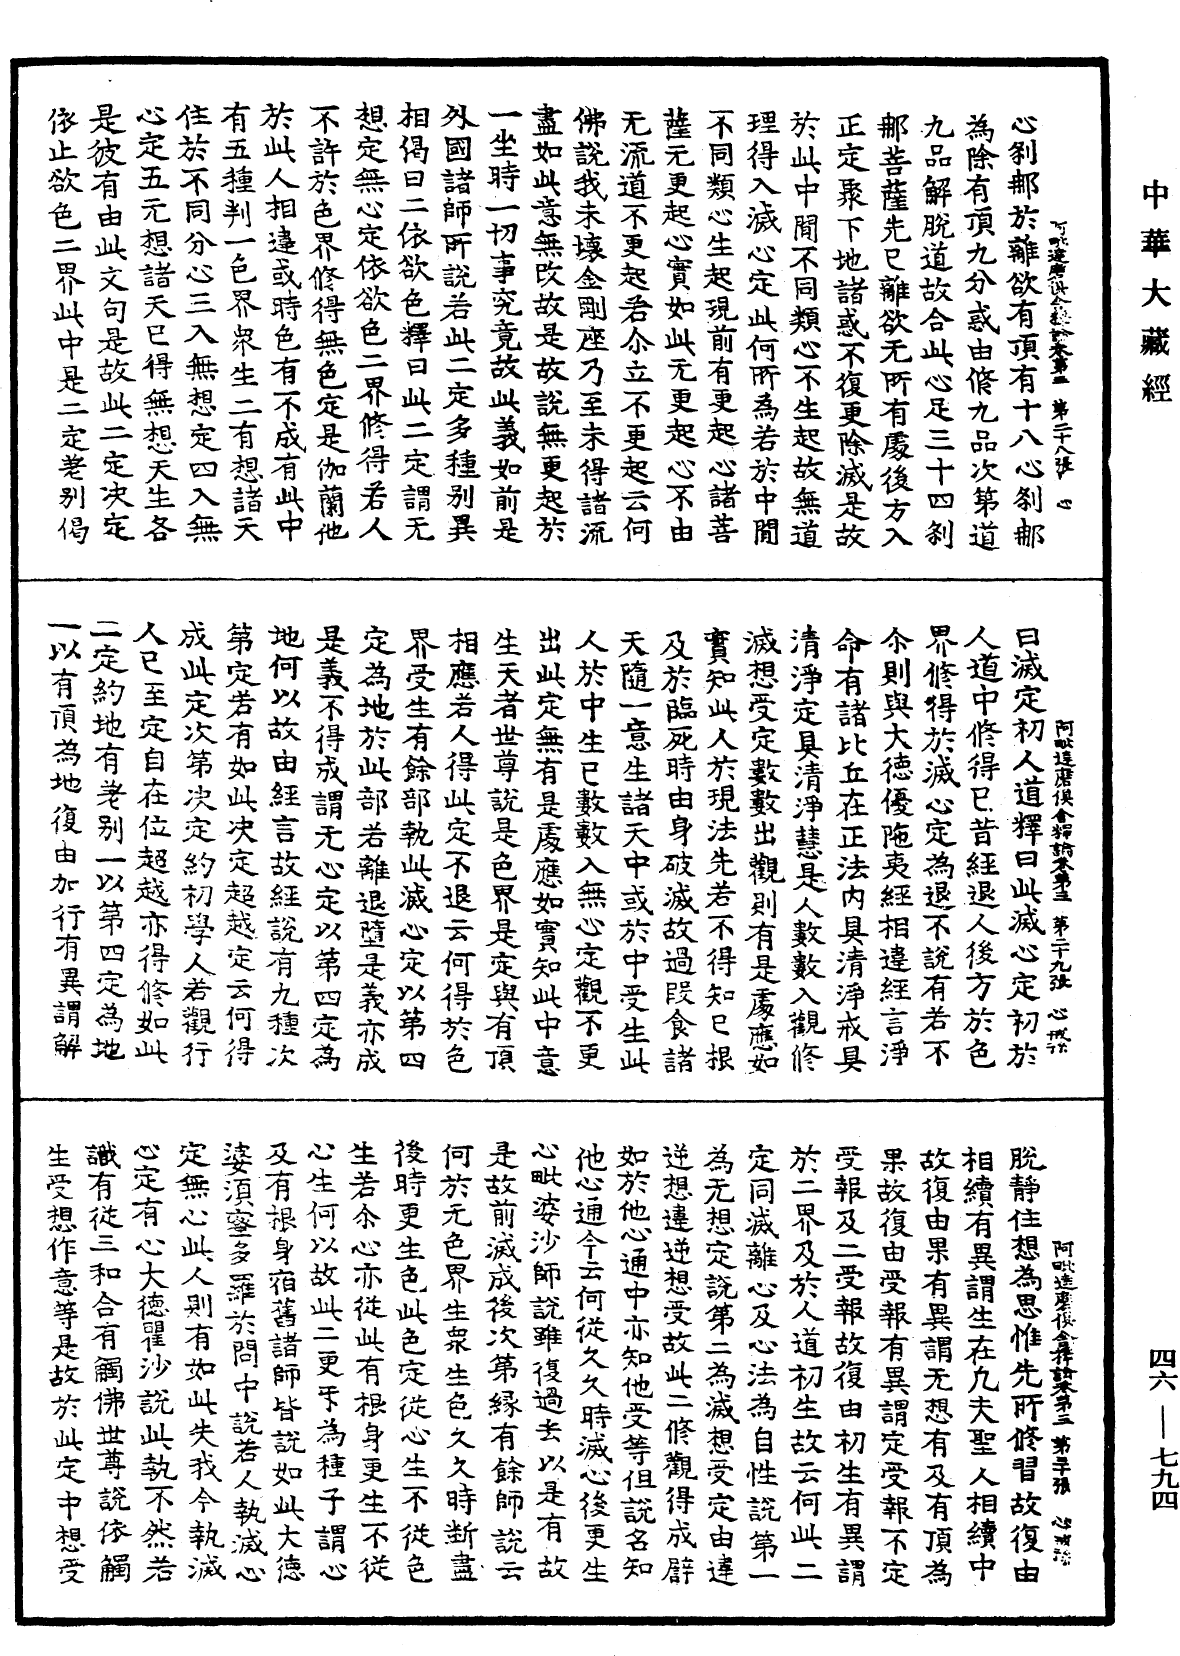 中華大藏經
心刹那於離欲有頂有十八心刹那
為除有頂九分惑由修九品次第道
九品解脫道故合此心足三十四刹
那菩薩先已離欲无所有處後方入
正定聚下地諸惑不復更除滅是故
於此中間不同類心不生起故無道
理得入滅心定此何所為若於中間
不同類心生起現前有更起心諸菩
薩元更起心實如此无更起心不由
无流道不更起若尒立不更起云何
佛說我未壞金剛座乃至未得諸流
盡如此意無改故是故說無更起於
一坐時一切事究竟故此義如前是
外國諸師所說若此二定多種別異
相偈曰二依欲色釋曰此二定謂无
想定無心定依欲色二界修得若人
不許於色界修得無色定是伽蘭他
於此人相違或時色有不成有此中
有五種判一色界衆生二有想諸天
住於不同分心三入無想定四入無
心定五无想諸天已得無想天生各
是彼有由此文句是故此二定決定
依止欲色二界此中是二定差別偈
阿毗達磨俱舍釋論卷第三 第二十八張 心
曰滅定初人道釋曰此滅心定初於
人道中修得已昔經退人後方於色
界修得於滅心定為退不說有若不
尒則與大德優陁夷經相違經言淨
命有諸比丘在正法内具清淨戒具
清淨定具清淨慧是人數數入觀修
滅想受定數數出觀則有是處應如
實知此人於現法先若不得知已根
及於臨死時由身破滅故過段食諸
天隨一意生諸天中或於中受生此
人於中生已數數入無心定觀不更
出此定無有是處應如實知此中意
生天者世尊說是色界是定與有頂
相應若人得此定不退云何得於色
界受生有餘部執此滅心定以第四
定為地於此部若離退墮是義亦成
是義不得成謂无心定以第四定為
地何以故由經言故經說有九種次
第定若有如此決定超越定云何得
成此定次第決定約初學人若觀行
人已至定自在位超越亦得修如此
二定約地有差別一以第四定為地
一以有頂為地復由加行有異謂解
阿毗達磨俱舍釋論卷第三 第二十九張 心
脫靜住想為思惟先所修習故復由
相續有異謂生在九夫聖人相續中
故復由果有異謂无想有及有頂為
果故復由受報有異謂定受報不定
受報及二受報故復由初生有異謂
於二界及於人道初生故云何此二
定同滅離心及心法為自性說第一
為无想定說第二為滅想受定由違
逆想違逆想受故此二修觀得成辟
如於他心通中亦知他受等但說名知
他心通今云何從久久時滅心後更生
心毗婆沙師說雖復過去以是有故
是故前滅成後次第緣有餘師說云
何於无色界生衆生色久久時斷盡
後時更生色此色定從心生不從色
生若尒心亦從此有根身更生不從
心生何以故此二更互為種子謂心
及有根身宿舊諸師皆說如此大德
婆須蜜多羅於問中說若人執滅心
定無心此人則有如此失我今執滅
心定有心大德瞿沙說此執不然若
識有從三和合有觸佛世尊說依觸
生受想作意等是故於此定中想受
阿毗達磨俱舍釋論卷第三 第三十張 心
四六—七九四